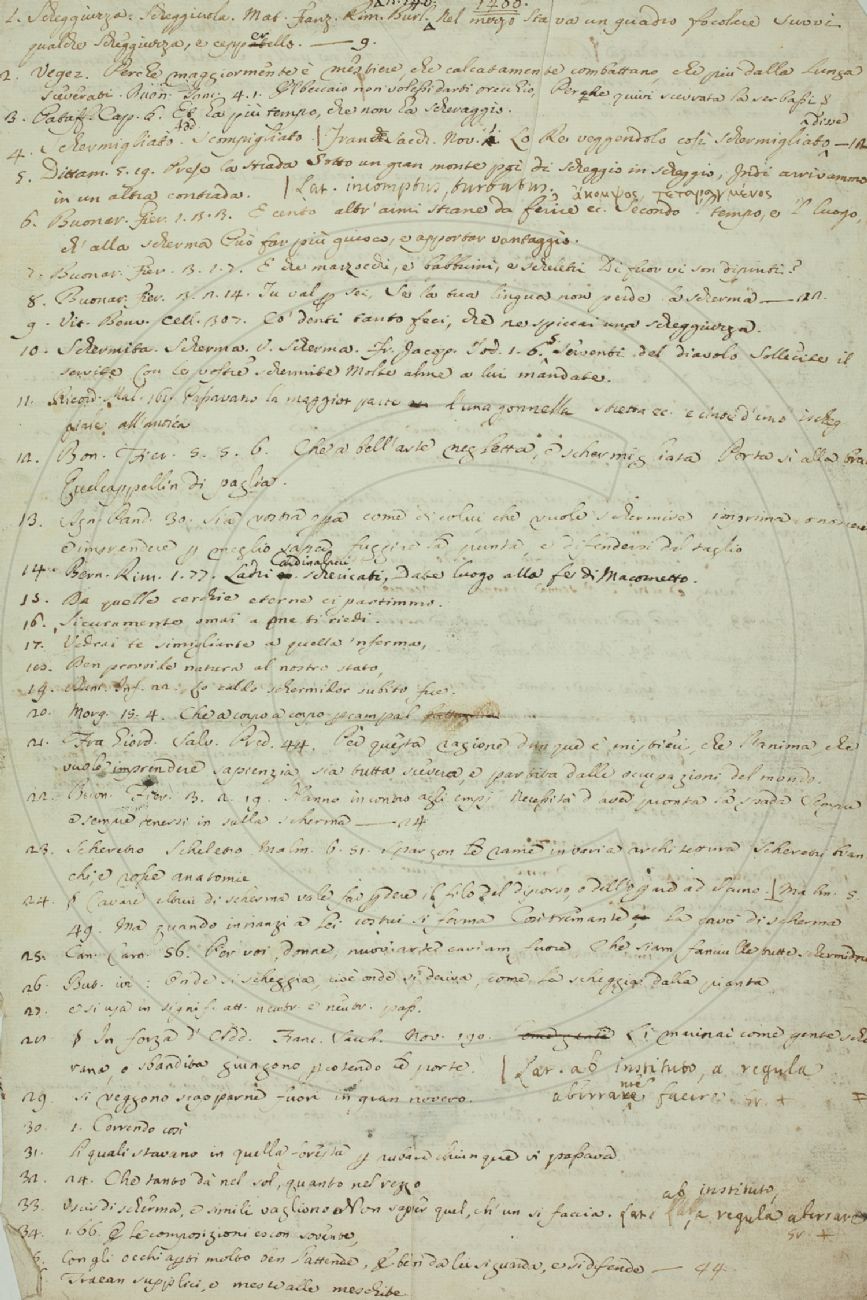 1. Scheggiuzza: Scheggiuola. Mat. Franz. Rim. Burl. Nel mezzo sta va un quadro focolare Suvvi
qualche scheggiuzza, e ceppatello. — 9.
2. Vegez. Perchè maggiormente è mestiere, che calcatamente combattano, che più dalla lunga
sceverati. Buon. Tanc. 4. 1. non volessi darti orecchio, Perche quivi scevrata la ser bassi
3. Pataff. Cap. 6. Et ha più tempo, che non ha scheraggio.
4. Schermigliato. Scompigliato | Franc. Sacch. Nov. 4. Lo Re veggendolo così schermigliato — 12
disse
5. Dittam. 5. 19. Preso la strada Sotto un gran monte poi di scheggio in scheggio, Indi arrivamono
in un altra contrada. | Lat. incomptus, turbatus. ἄκομψος τεταραγμένος
6. Buonar. Fier. 1. 3. 3. E cento altr' armi strane da ferire ec. Secondo 'l tempo, e 'l luogo,
ch' alla scherma Può far più giuoco, e apportar vantaggio.
7. Buonar. Fier. 3. 1. 7. E che marzocchi, e babbuini, e scheletri Di fuor vi son dipinti?
8. Buonar. Fier. 3. 2. 14. Tu val p sei, Se la tua lingua non perde la scherma — 22.
9. Vit. Benv. Cell. 307. Co' denti tanto feci, che ne spiccai una scheggiuzza.
10. Schermita. Scherma. V. Scherma. Fr. Jacop. Tod. 1. 6. Serventi del diavolo Sollecite il
servite Con le vostre schermite Molte alme a lui mandate.
11. Ricord. Mal. 161. Passavano la maggior parte d'una gonnella stretta ec. e cinte d'uno scheg
giale all' antica
12. Bon. Fier. 5. 5. 6. Che a bell' arte negletta, e schermigliata Porta sì alla bra
Quel cappellin di paglia.
13. Agn. Pand. 30. Sia vostra opa come di colui che vuole schermire imprima conoscere
e imprendere p meglio sapere fuggire la punta, e difendersi dal taglio
14. Bern. Rim. 1. 77. Ladri cardinalacci schericati, Date luogo alla fe di Macometto.
15. Da quelle cerchie eterne ci partimmo.
16. Sicuramente omai a me ti riedi.
17. Vedrai te simigliante a quella 'nferma,
18. Ben provvide natura al nostro stato,
19. Dant. Inf. 22. Lo caldo schermidor subito fue.
20. Morg. 15. 4. Che a corpo a corpo p campal
21. Fra Giord. Salv. Pred. 44. Per questa cagione dunque è mistieri, che l'anima che
vuole imprendere sapienzia sia tutta scevera e partita dalle occupazioni del mondo.
22. Buon. Fier. 3. 2. 19. Hanno incontro agli empj Necessità d'aver pronta la spada Sempre
e sempre tenersi in sulla scherma — 24
23. Scheretro Scheletro Malm. 6. 51. Sparron le rame in varia architettura Scheretri bian
chi, e rosse anatomie
24. § Cavare altrui di scherma vale far perdere il filo del discorso, o dell'. | Malm. 5.
49. Ma quando innanzi a lei costui si ferma Così tremante, la cavò di scherma
25. Can. Carn. 56. Per voi, donne, nuov' arte caviam fuore, Che siam fanciulle tutte schermidrici
26. But. ivi: Onde si scheggia, cioè onde si deriva, come la scheggia dalla pianta
27. e si usa in signif. att. neutr. e neutr. pass.
28. § In forza d' Add. Franc. Sacch. Nov. 190. Li mainai come gente sche
rana, o sbandita giungono, pcotendo le porte. | Lat. ab instituto, a regula
29. si veggono sicoparne fuori in gran novero. aberrare facere. gr. +
30. 1. Correndo così
31. li quali stavano in quella foresta p rubare chiunque vi passava
32. 24. Che tanto dà nel sol, quanto nel rezzo
33. Uscir di scherma, e simili vagliono Non saper quel, ch' un si faccia. Lat. ab instituto, a regula aberrare
gr. +
34. 166. le composizioni escon sovente,
Con gli occhi apti molto ben l'attende, E ben da lei si guarda, e si difende — 44.
Traean supplici, e meste alle meschite